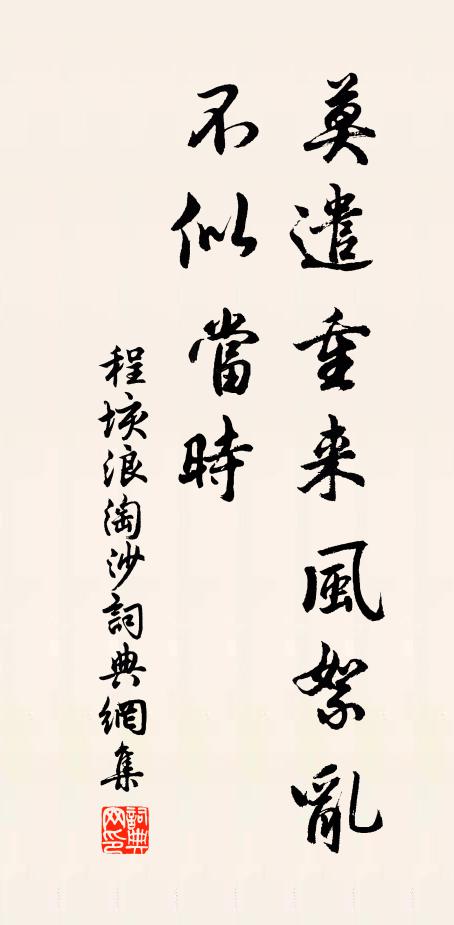 莫遣重来風絮亂
不似當時
程垓浪淘沙詞典網集
詞典網印